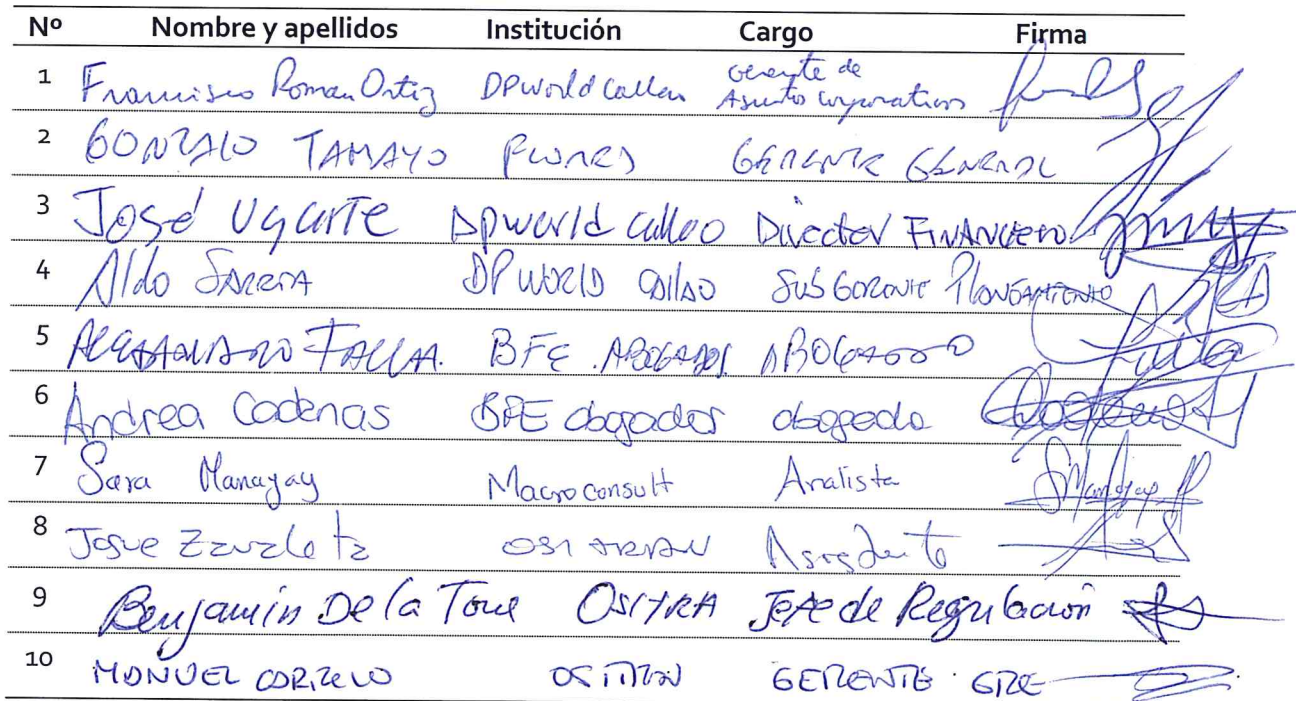 Nº Nombre y apellidos Institución Cargo Firma
1 Francisco Roman Ortiz DPWorld Callao Gerente de
Asuntos Corporativos
2 GONZALO TAMAYO GERENTE GENERAL
3 José Ugarte DPWorld Callao Director FINANCIERO
4 Aldo SARRIA DP WORLD CALLAO SUB GERENTE PLANEAMIENTO
5 ALEJANDRO FALLA. BFE ABOGADOS ABOGADO
6 Andrea Cadenas BFE abogados abogada
7 Sara Manayay Macroconsult Analista
8 Josue Zavaleta OSITRAN
9 Benjamín De la Torre OSITRA Jefe de Regulación
10 MANUEL CARRILLO OSITRAN GERENTE GRE